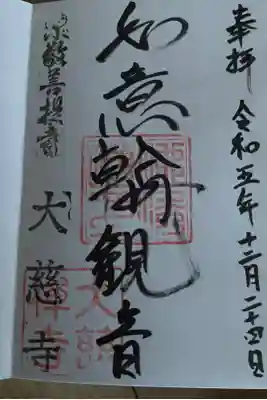 奉拝 令和五年十二月二十四日
如意輪観音
大慈寺
大慈禅寺